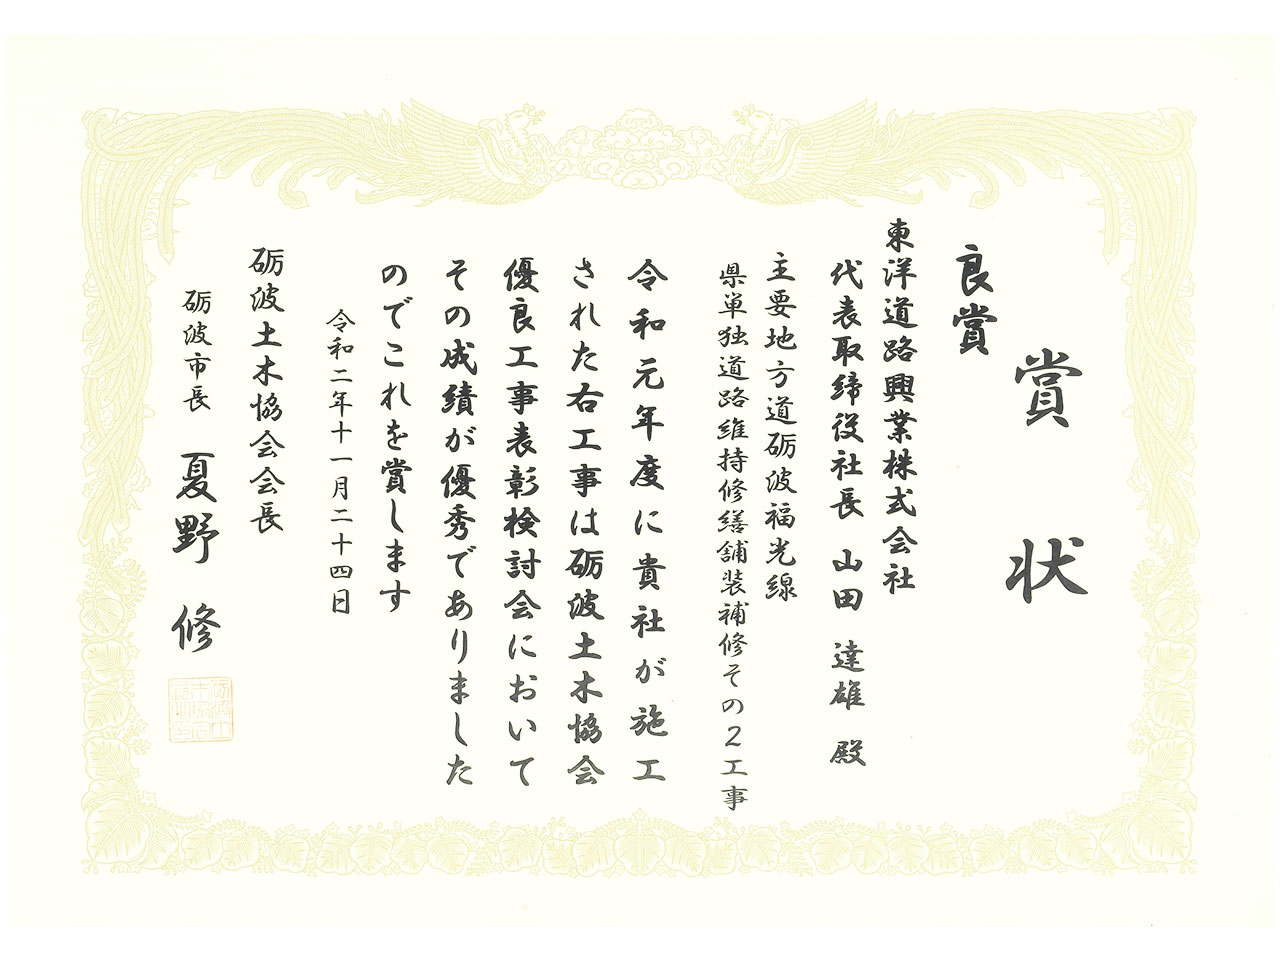 賞状
良賞
東洋道路興業株式会社
代表取締役社長 山田 達雄 殿
主要地方道砺波福光線
県単独道路維持修繕舗装補修その２工事
令和元年度に貴社が施工
された右工事は砺波土木協会
優良工事表彰検討会において
その成績が優秀でありました
のでこれを賞します
令和二年十一月二十四日
砺波土木協会会長
砺波市長 夏野 修